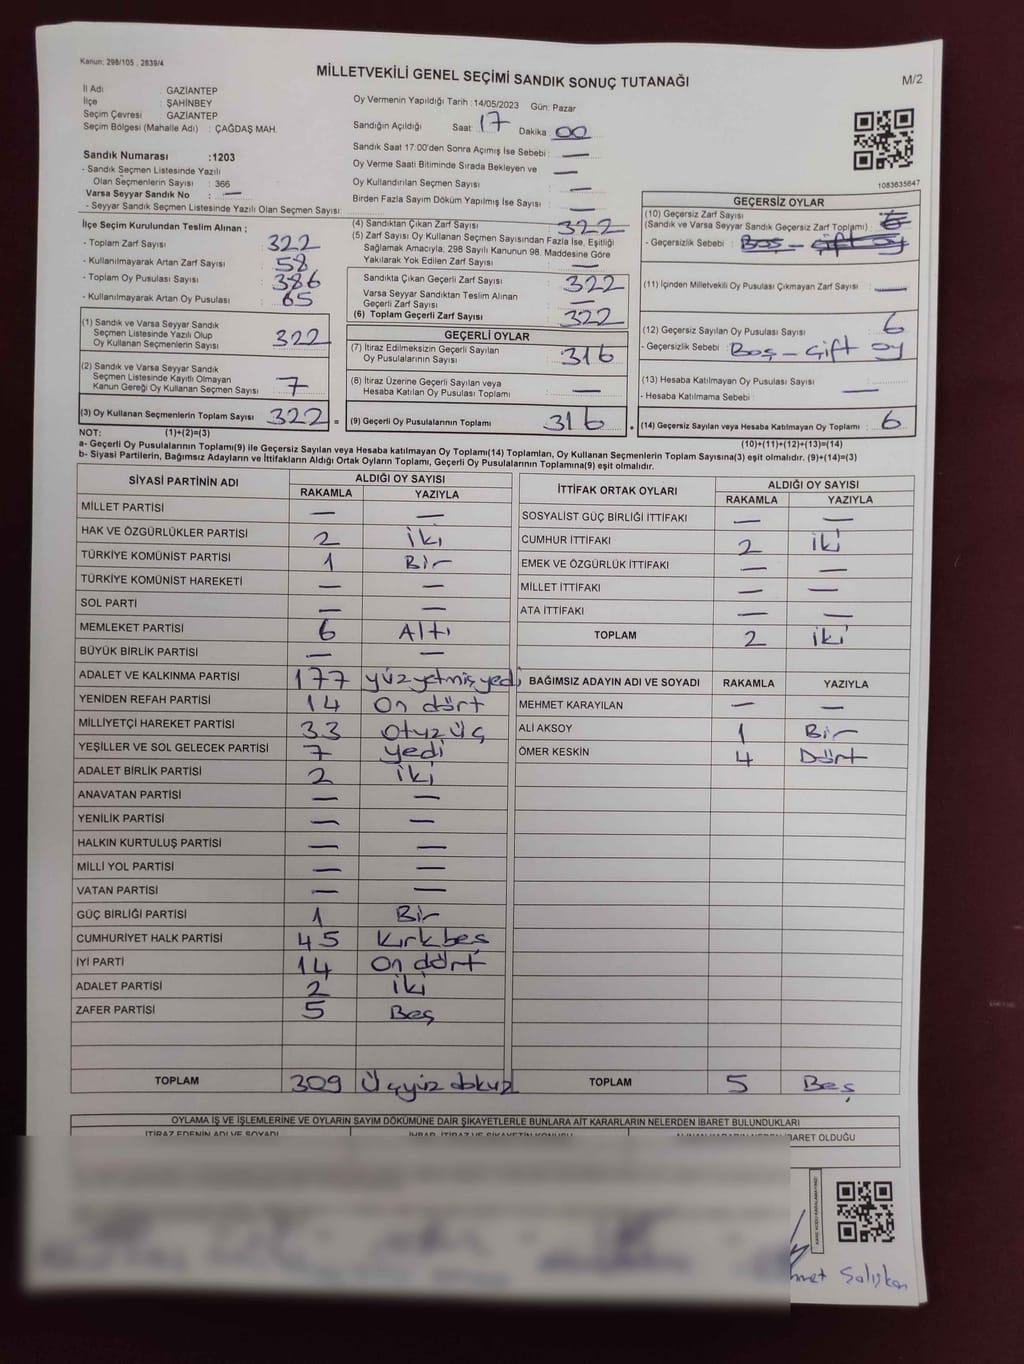 Kanun: 298/105 , 2839/4
MİLLETVEKİLİ GENEL SEÇİMİ SANDIK SONUÇ TUTANAĞI
M/2
İl Adı : GAZİANTEP
İlçe : ŞAHİNBEY
Seçim Çevresi : GAZİANTEP
Seçim Bölgesi (Mahalle Adı) : ÇAĞDAŞ MAH.
Sandık Numarası :1203
- Sandık Seçmen Listesinde Yazılı
Olan Seçmenlerin Sayısı : 366
Varsa Seyyar Sandık No : —
- Seyyar Sandık Seçmen Listesinde Yazılı Olan Seçmen Sayısı:
Oy Vermenin Yapıldığı Tarih :14/05/2023 Gün: Pazar
Sandığın Açıldığı Saat: 17 Dakika: 00
Sandık Saat 17:00'den Sonra Açılmış İse Sebebi : —
Oy Verme Saati Bitiminde Sırada Bekleyen ve —
Oy Kullandırılan Seçmen Sayısı : —
Birden Fazla Sayım Döküm Yapılmış İse Sayısı : —
1083635647
İlçe Seçim Kurulundan Teslim Alınan ;
- Toplam Zarf Sayısı : 322
- Kullanılmayarak Artan Zarf Sayısı : 58
- Toplam Oy Pusulası Sayısı : 386
- Kullanılmayarak Artan Oy Pusulası : 65
(1) Sandık ve Varsa Seyyar Sandık
Seçmen Listesinde Yazılı Olup
Oy Kullanan Seçmenlerin Sayısı : 322
(2) Sandık ve Varsa Seyyar Sandık
Seçmen Listesinde Kayıtlı Olmayan
Kanun Gereği Oy Kullanan Seçmen Sayısı : 7
(3) Oy Kullanan Seçmenlerin Toplam Sayısı : 322 =
(4) Sandıktan Çıkan Zarf Sayısı : 322
(5) Zarf Sayısı Oy Kullanan Seçmen Sayısından Fazla İse, Eşitliği
Sağlamak Amacıyla, 298 Sayılı Kanunun 98. Maddesine Göre
Yakılarak Yok Edilen Zarf Sayısı : —
Sandıkta Çıkan Geçerli Zarf Sayısı : 322
Varsa Seyyar Sandıktan Teslim Alınan
Geçerli Zarf Sayısı : —
(6) Toplam Geçerli Zarf Sayısı : 322
GEÇERLİ OYLAR
(7) İtiraz Edilmeksizin Geçerli Sayılan
Oy Pusulalarının Sayısı : 316
(8) İtiraz Üzerine Geçerli Sayılan veya
Hesaba Katılan Oy Pusulası Toplamı : —
(9) Geçerli Oy Pusulalarının Toplamı : 316
GEÇERSİZ OYLAR
(10) Geçersiz Zarf Sayısı
(Sandık ve Varsa Seyyar Sandık Geçersiz Zarf Toplamı) : 6
- Geçersizlik Sebebi : Boş - Çift oy
(11) İçinden Milletvekili Oy Pusulası Çıkmayan Zarf Sayısı : —
(12) Geçersiz Sayılan Oy Pusulası Sayısı : 6
- Geçersizlik Sebebi : Boş - Çift oy
(13) Hesaba Katılmayan Oy Pusulası Sayısı :
- Hesaba Katılmama Sebebi : —
(14) Geçersiz Sayılan veya Hesaba Katılmayan Oy Toplamı : 6
NOT: (1)+(2)=(3)
(10)+(11)+(12)+(13)=(14)
a- Geçerli Oy Pusulalarının Toplamı(9) ile Geçersiz Sayılan veya Hesaba Katılmayan Oy Toplamı(14) Toplamları, Oy Kullanan Seçmenlerin Toplam Sayısına(3) eşit olmalıdır. (9)+(14)=(3)
b- Siyasi Partilerin, Bağımsız Adayların ve İttifakların Aldığı Ortak Oyların Toplamı, Geçerli Oy Pusulalarının Toplamına(9) eşit olmalıdır.
SİYASİ PARTİNİN ADI ALDIĞI OY SAYISI
RAKAMLA YAZIYLA
MİLLET PARTİSİ — —
HAK VE ÖZGÜRLÜKLER PARTİSİ 2 iki
TÜRKİYE KOMÜNİST PARTİSİ 1 Bir
TÜRKİYE KOMÜNİST HAREKETİ — —
SOL PARTİ — —
MEMLEKET PARTİSİ 6 Altı
BÜYÜK BİRLİK PARTİSİ — —
ADALET VE KALKINMA PARTİSİ 177 yüzyetmişyedi
YENİDEN REFAH PARTİSİ 14 On dört
MİLLİYETÇİ HAREKET PARTİSİ 33 Otuz üç
YEŞİLLER VE SOL GELECEK PARTİSİ 7 yedi
ADALET BİRLİK PARTİSİ 2 iki
ANAVATAN PARTİSİ — —
YENİLİK PARTİSİ — —
HALKIN KURTULUŞ PARTİSİ — —
MİLLİ YOL PARTİSİ — —
VATAN PARTİSİ — —
GÜÇ BİRLİĞİ PARTİSİ 1 Bir
CUMHURİYET HALK PARTİSİ 45 Kırkbeş
İYİ PARTİ 14 On dört
ADALET PARTİSİ 2 iki
ZAFER PARTİSİ 5 Beş
TOPLAM 309 Üçyüz dokuz
İTTİFAK ORTAK OYLARI ALDIĞI OY SAYISI
RAKAMLA YAZIYLA
SOSYALİST GÜÇ BİRLİĞİ İTTİFAKI — —
CUMHUR İTTİFAKI 2 iki
EMEK VE ÖZGÜRLÜK İTTİFAKI — —
MİLLET İTTİFAKI — —
ATA İTTİFAKI — —
TOPLAM 2 iki
BAĞIMSIZ ADAYIN ADI VE SOYADI RAKAMLA YAZIYLA
MEHMET KARAYILAN — —
ALİ AKSOY 1 Bir
ÖMER KESKİN 4 Dört
TOPLAM 5 Beş
OYLAMA İŞ VE İŞLEMLERİNE VE OYLARIN SAYIM DÖKÜMÜNE DAİR ŞİKAYETLERLE BUNLARA AİT KARARLARIN NELERDEN İBARET BULUNDUKLARI
İTİRAZ EDENİN ADI VE SOYADI